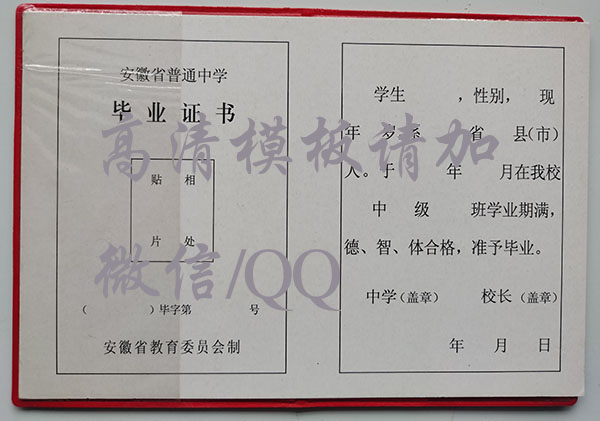 安徽省普通中学
毕业证书
贴 相
片 处
( )毕字第 号
安徽省教育委员会制
学生 ,性别, 现
年 岁系 省 县(市)
人。于 年 月在我校
中 级 班学业期满,
德、智、体合格,准予毕业。
中学(盖章) 校长(盖章)
年 月 日
高清模板请加
微信/QQ